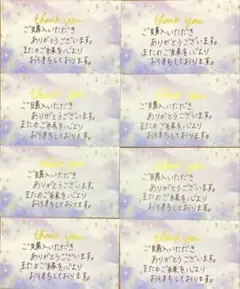 thank you
ご購入いただき
ありがとうございます。
またのご来店を心より
お待ちしております。
thank you
ご購入いただき
ありがとうございます。
またのご来店を心より
お待ちしております。
thank you
ご購入いただき
ありがとうございます。
またのご来店を心より
お待ちしております。
thank you
ご購入いただき
ありがとうございます。
またのご来店を心より
お待ちしております。
thank you
ご購入いただき
ありがとうございます。
またのご来店を心より
お待ちしております。
thank you
ご購入いただき
ありがとうございます。
またのご来店を心より
お待ちしております。
thank you
ご購入いただき
ありがとうございます。
またのご来店を心より
お待ちしております。
thank you
ご購入いただき
ありがとうございます。
またのご来店を心より
お待ちしております。